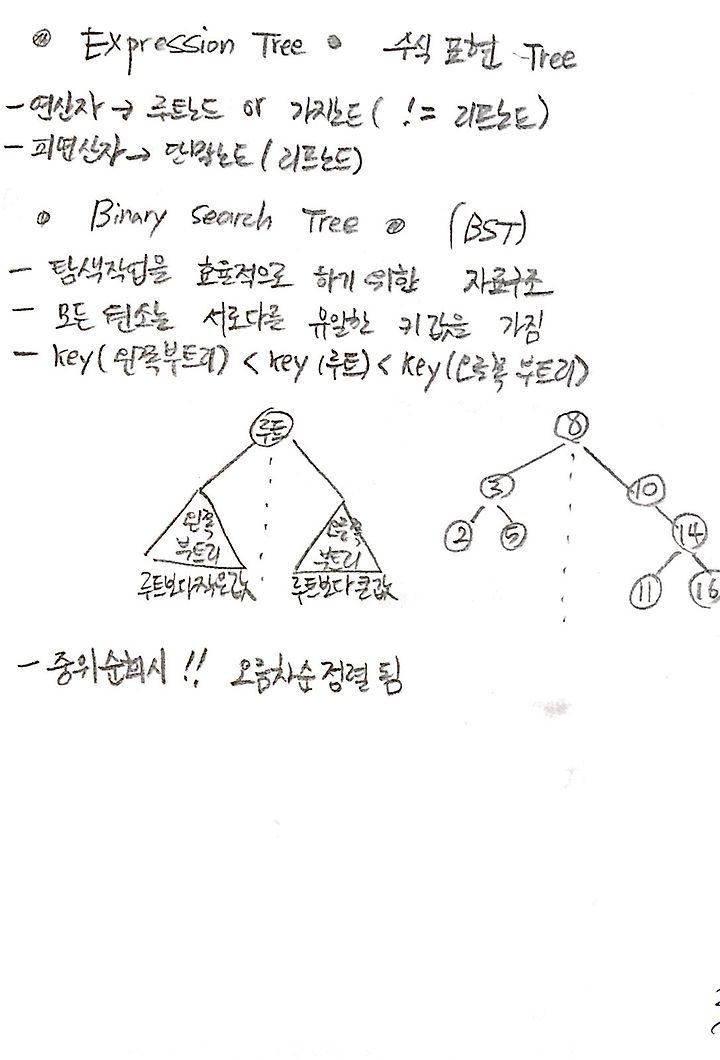 Expression Tree 수식 표현 Tree
- 연산자 → 루트노드 or 가지노드 ( != 리프노드)
- 피연산자 → 단말노드 (리프노드)
Binary Search Tree (BST)
- 탐색작업을 효율적으로 하기 위한 자료구조
- 모든 원소는 서로다른 유일한 키값을 가짐
- key(왼쪽부트리) < key(루트) < key(오른쪽 부트리)
루트
왼쪽
부트리
루트보다 작은값
오른쪽
부트리
루트보다 큰값
8
3 10
2 5 14
11 16
- 중위순회시 !! 오름차순정렬 됨